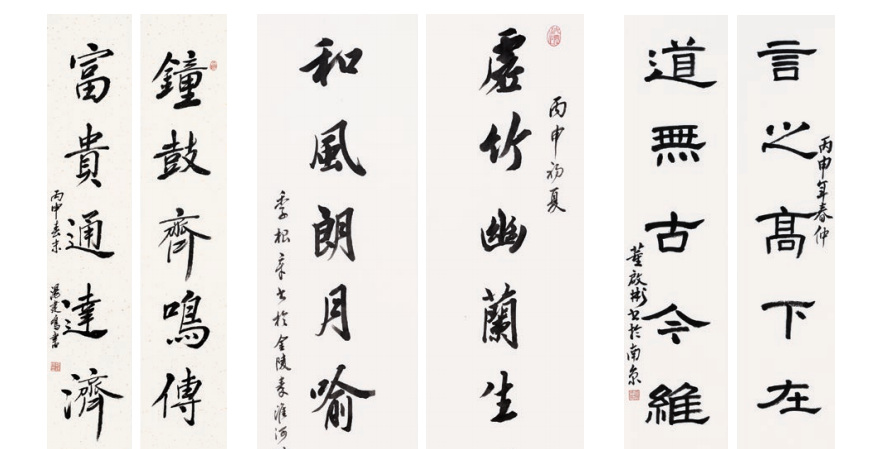 丙申年春仲
言之高下在
道無古今維
董啟彬書於南京
丙申初夏
虛竹幽蘭生
和風朗月喻
季松章書於金陵秦淮河
鐘鼓齊鳴傳
富貴通達濟
丙申春末